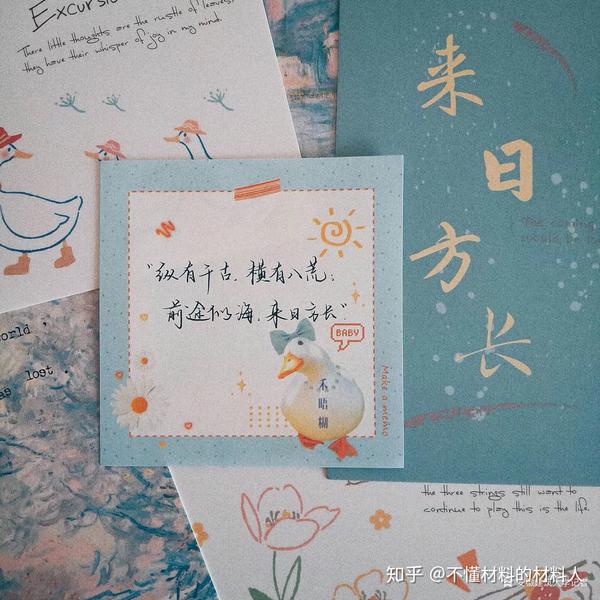 Excursio
There little thoughts are the rustle of leaves;
they have their whisper of joy in my mind.
来日方长
"纵有千古，横有八荒；
前途似海，来日方长"
BABY
不
唔
糊
Make a memo
orld ,
as lost .
the three strings still want to
continue to play this is the life.
知乎 @不懂材料的材料人